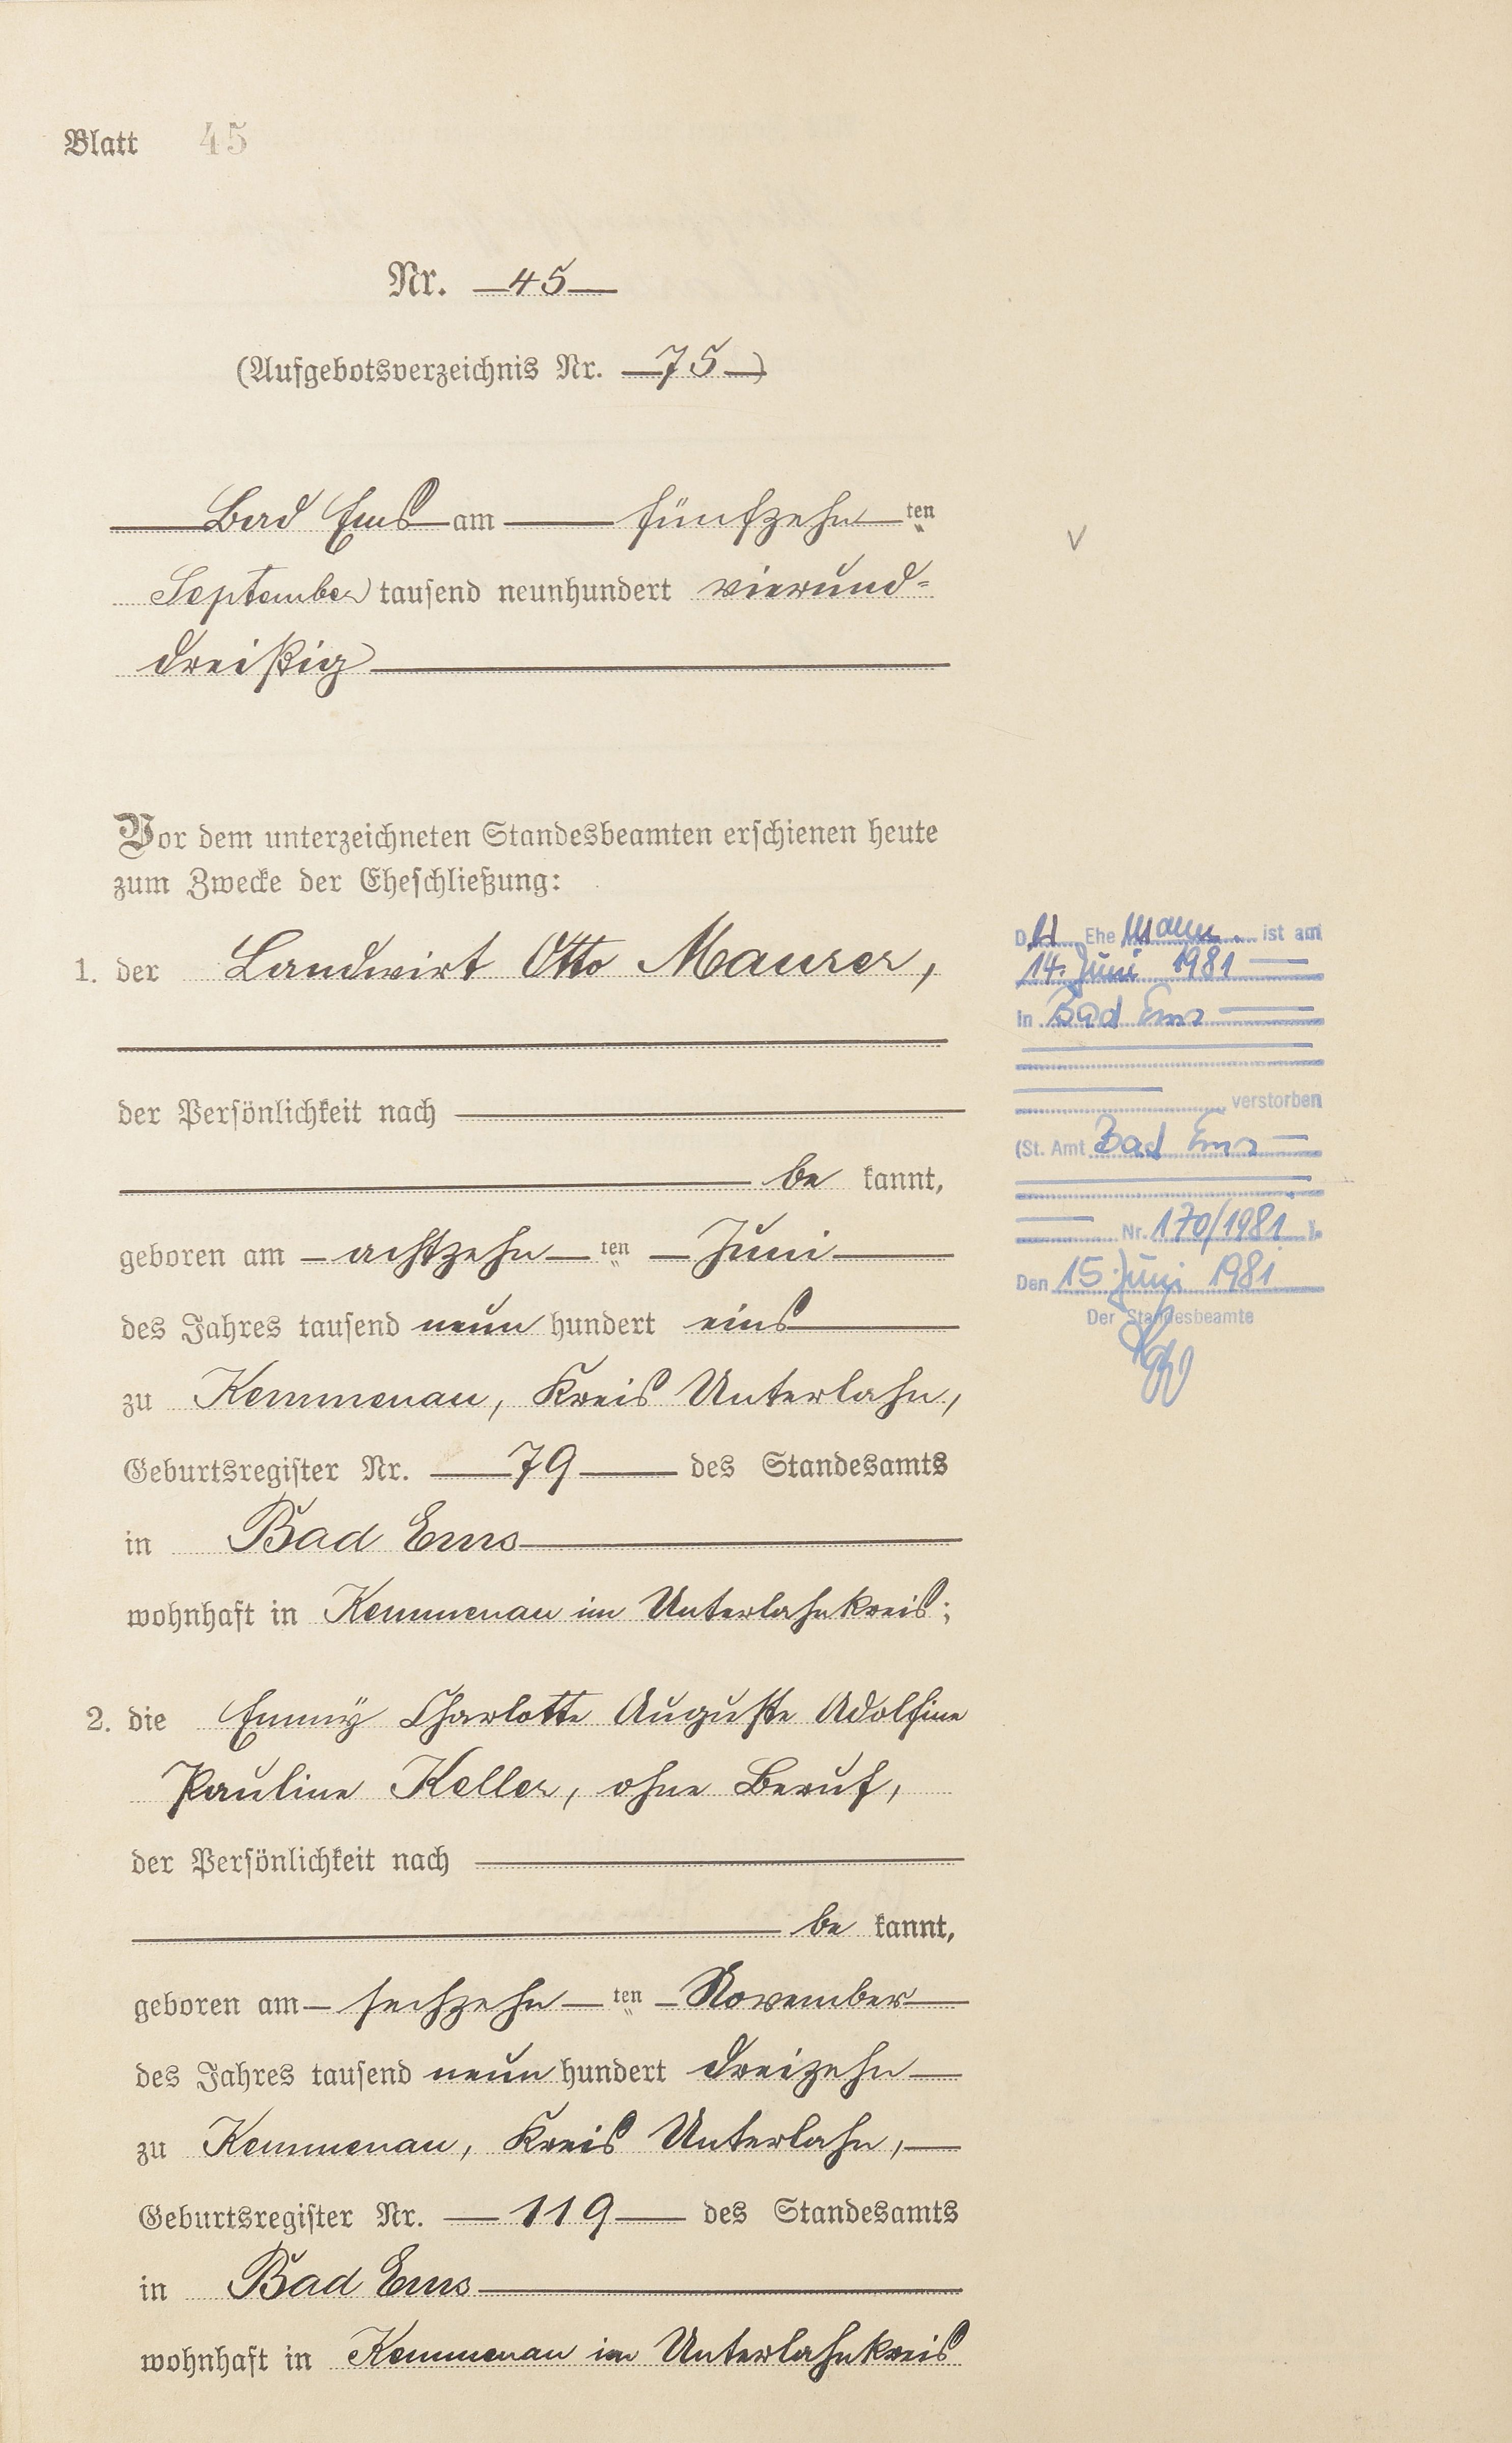 Blatt 45
Nr. 45
(Aufgebotsverzeichnis Nr. 75)
Bad Ems am fünfzehn ten
September tausend neunhundert vierund=
dreißig
Vor dem unterzeichneten Standesbeamten erschienen heute
zum Zwecke der Eheschließung:
1. der Landwirt Otto Maurer,
der Persönlichkeit nach
be kannt,
geboren am achtzehn ten Juni
des Jahres tausend neun hundert eins
zu Kemmenau, Kreis Unterlahn,
Geburtsregister Nr. 79 des Standesamts
in Bad Ems
wohnhaft in Kemmenau im Unterlahnkreis;
2. die Emmy Charlotte Auguste Adolfine
Pauline Keller, ohne Beruf,
der Persönlichkeit nach
be kannt,
geboren am sechzehn ten November
des Jahres tausend neun hundert dreizehn
zu Kemmenau, Kreis Unterlahn,
Geburtsregister Nr. 119 des Standesamts
in Bad Ems
wohnhaft in Kemmenau im Unterlahnkreis
Der Ehe Mann ist am
14. Juni 1981
in Bad Ems
verstorben
(St. Amt Bad Ems
Nr. 170/1981 ).
Den 15. Juni 1981
Der Standesbeamte